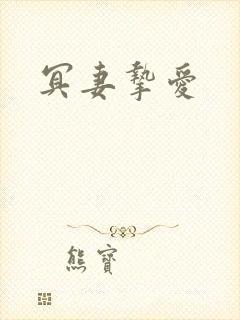 冥妻摯愛
熊寶